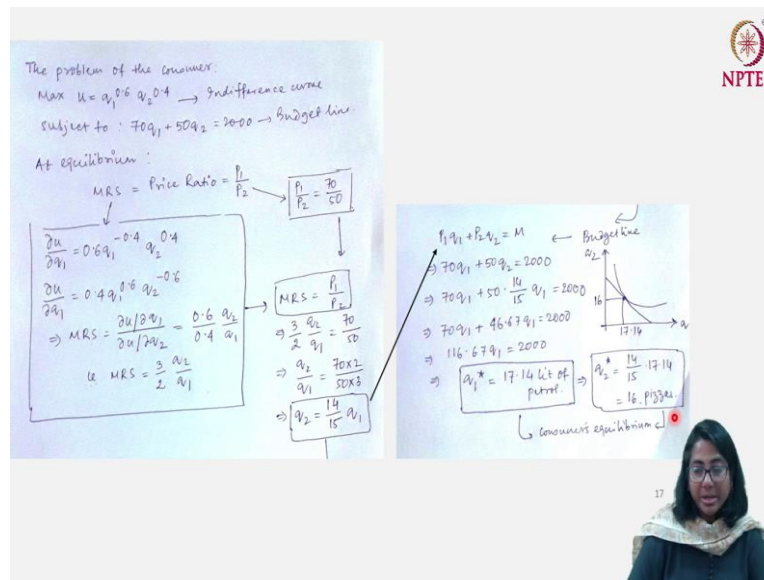 The problem of the consumer:
Max U = q₁^0.6 q₂^0.4 → Indifference curve
subject to : 70q₁ + 50q₂ = 2000 → Budget line.
At equilibrium :
MRS = Price Ratio = P₁/P₂
P₁/P₂ = 70/50
∂u/∂q₁ = 0.6q₁^-0.4 q₂^0.4
∂u/∂q₁ = 0.4q₁^0.6 q₂^-0.6
⇒ MRS = (∂u/∂q₁)/(∂u/∂q₂) = 0.6/0.4 q₂/q₁
ie MRS = 3/2 q₂/q₁
MRS = P₁/P₂
⇒ 3/2 q₂/q₁ = 70/50
⇒ q₂/q₁ = 70×2/50×3
⇒ q₂ = 14/15 q₁
P₁q₁ + P₂q₂ = M ← Budget line
⇒ 70q₁ + 50q₂ = 2000
⇒ 70q₁ + 50 · 14/15 q₁ = 2000
⇒ 70q₁ + 46.67q₁ = 2000
⇒ 116.67q₁ = 2000
⇒ q₁* = 17.14 lit of
petrol.
q₂
16
17.14
q
⇒ q₂* = 14/15 · 17.14
= 16 pizzas
consumer's equilibrium
NPTE
17